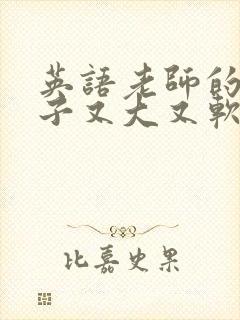 英語老師的
子又大又軟
比嘉史果